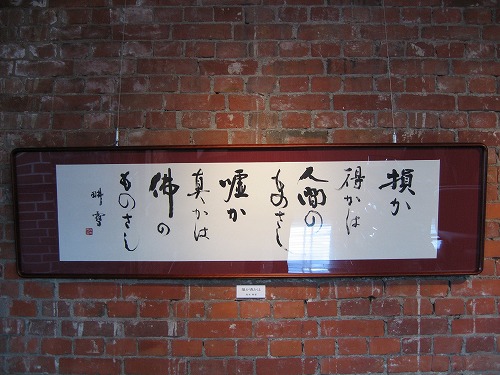 損か
得かは
人間の
ものさし
嘘か
真かは
佛の
ものさし